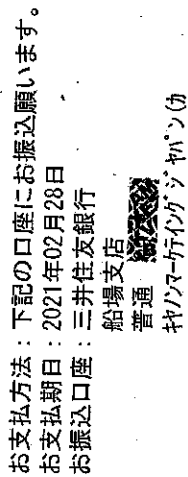 お支払方法：下記の口座にお振込願います。
お支払期日：2021年02月28日
お振込口座：三井住友銀行
船場支店
普通
ｷﾔﾉﾝﾏｰｹﾃｲﾝｸﾞｼﾞﾔﾊﾟﾝ(ｶ